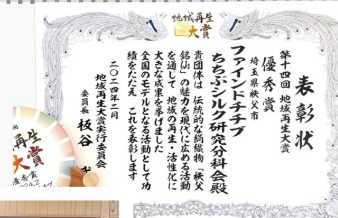 地域再生
大賞
表彰状
第十四回 地域再生大賞
優秀賞
埼玉県秩父市
ファインドチチブ
ちちぶシルク研究分科会殿
貴団体は 伝統的な絹織物「秩父
銘仙」の魅力を現代に広める活動
を通して 地域の再生・活性化に
大きな成果を挙げました
全国のモデルとなる活動として功
績をたたえ これを表彰します
二〇二四年二月
地域再生大賞実行委員会
委員長
再生
大賞
優秀賞
2024.2